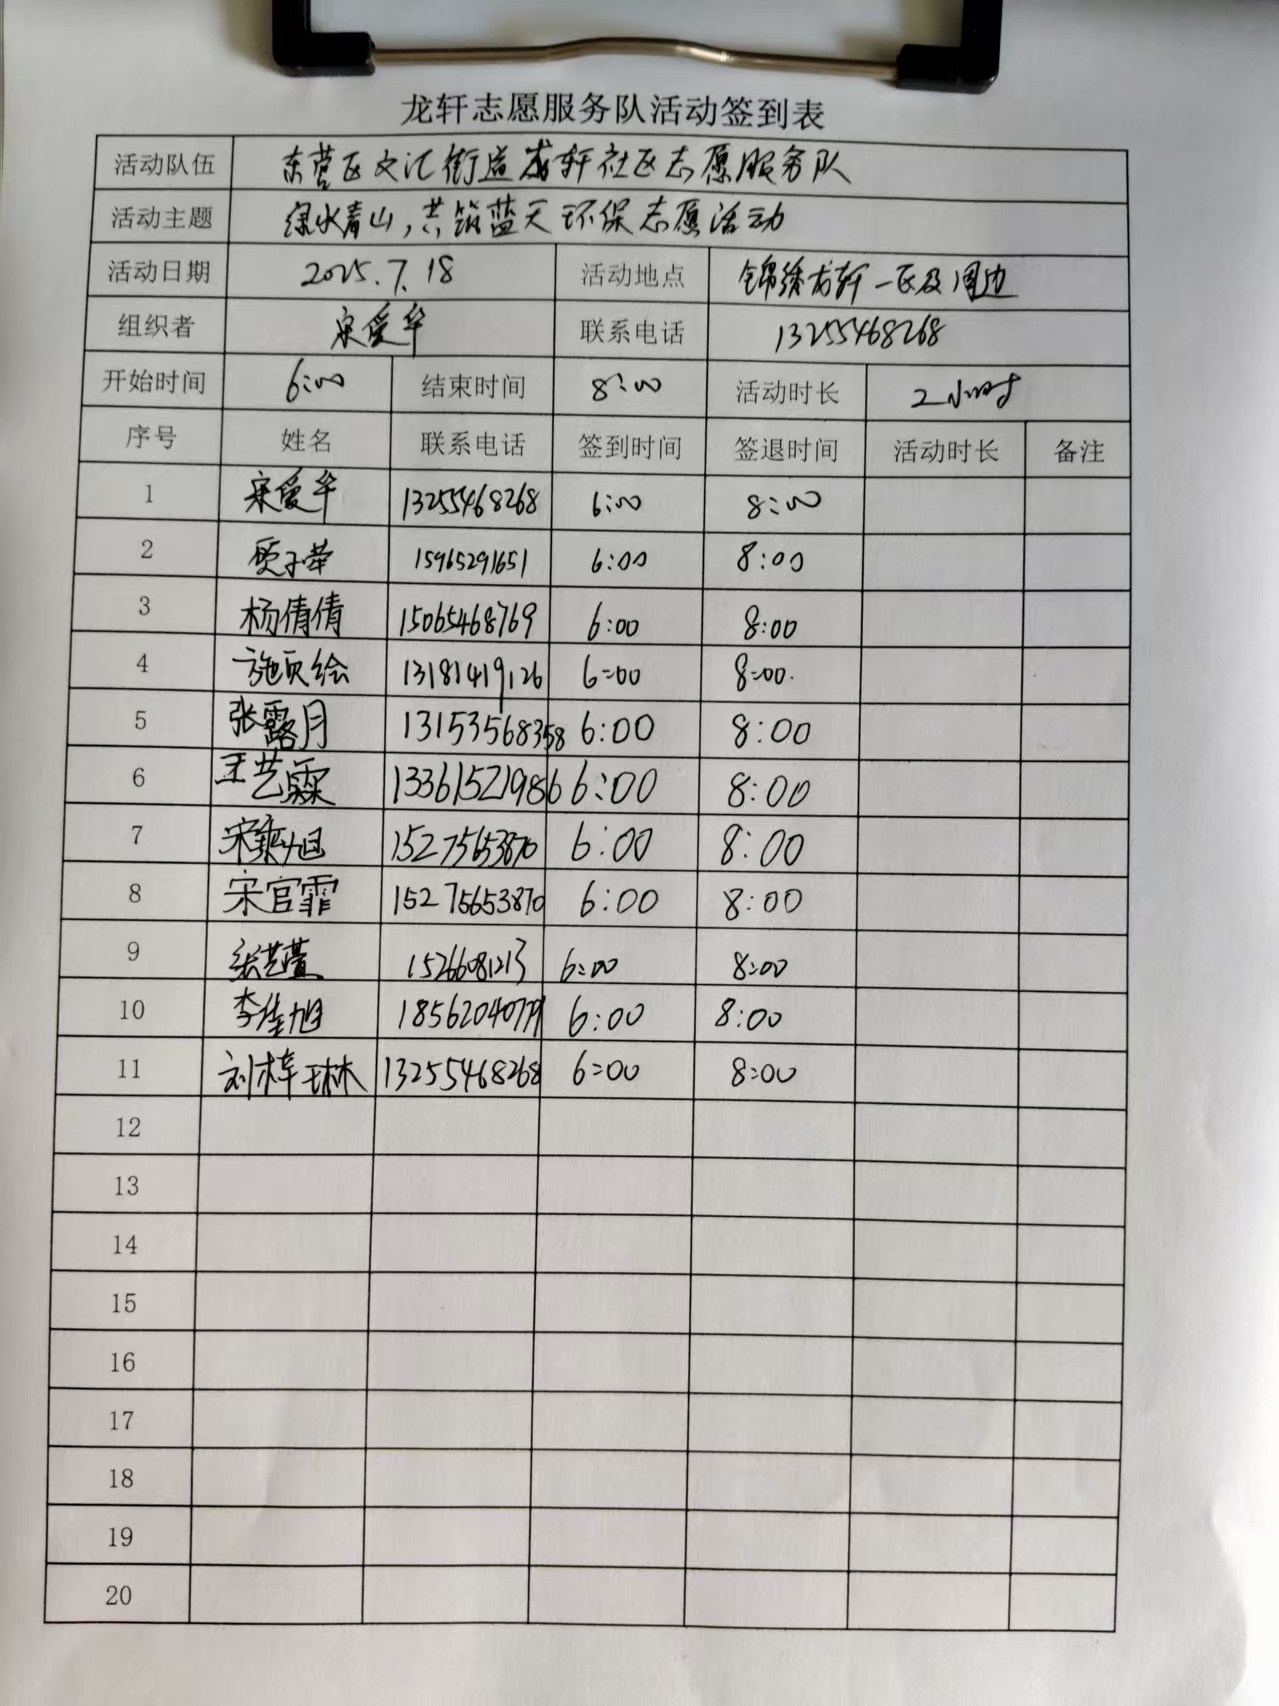 龙轩志愿服务队活动签到表
活动队伍 东营区文汇街道龙轩社区志愿服务队
活动主题 绿水青山,共筑蓝天环保志愿活动
活动日期 2025.7.18 活动地点 锦绣龙轩一区及周边
组织者 宋爱华 联系电话 13255468268
开始时间 6:00 结束时间 8:00 活动时长 2小时
序号 姓名 联系电话 签到时间 签退时间 活动时长 备注
1 宋爱华 13255468268 6:00 8:00
2 贾子荣 15965291651 6:00 8:00
3 杨倩倩 15065468769 6:00 8:00
4 施页绘 13181419126 6:00 8:00
5 张露月 13153568358 6:00 8:00
6 王艺霖 13361521986 6:00 8:00
7 宋 旭 15275653870 6:00 8:00
8 宋官霏 15275653870 6:00 8:00
9 张艺萱 15266081213 6:00 8:00
10 李佳旭 18562040779 6:00 8:00
11 刘梓琳 13255468268 6:00 8:00
12
13
14
15
16
17
18
19
20